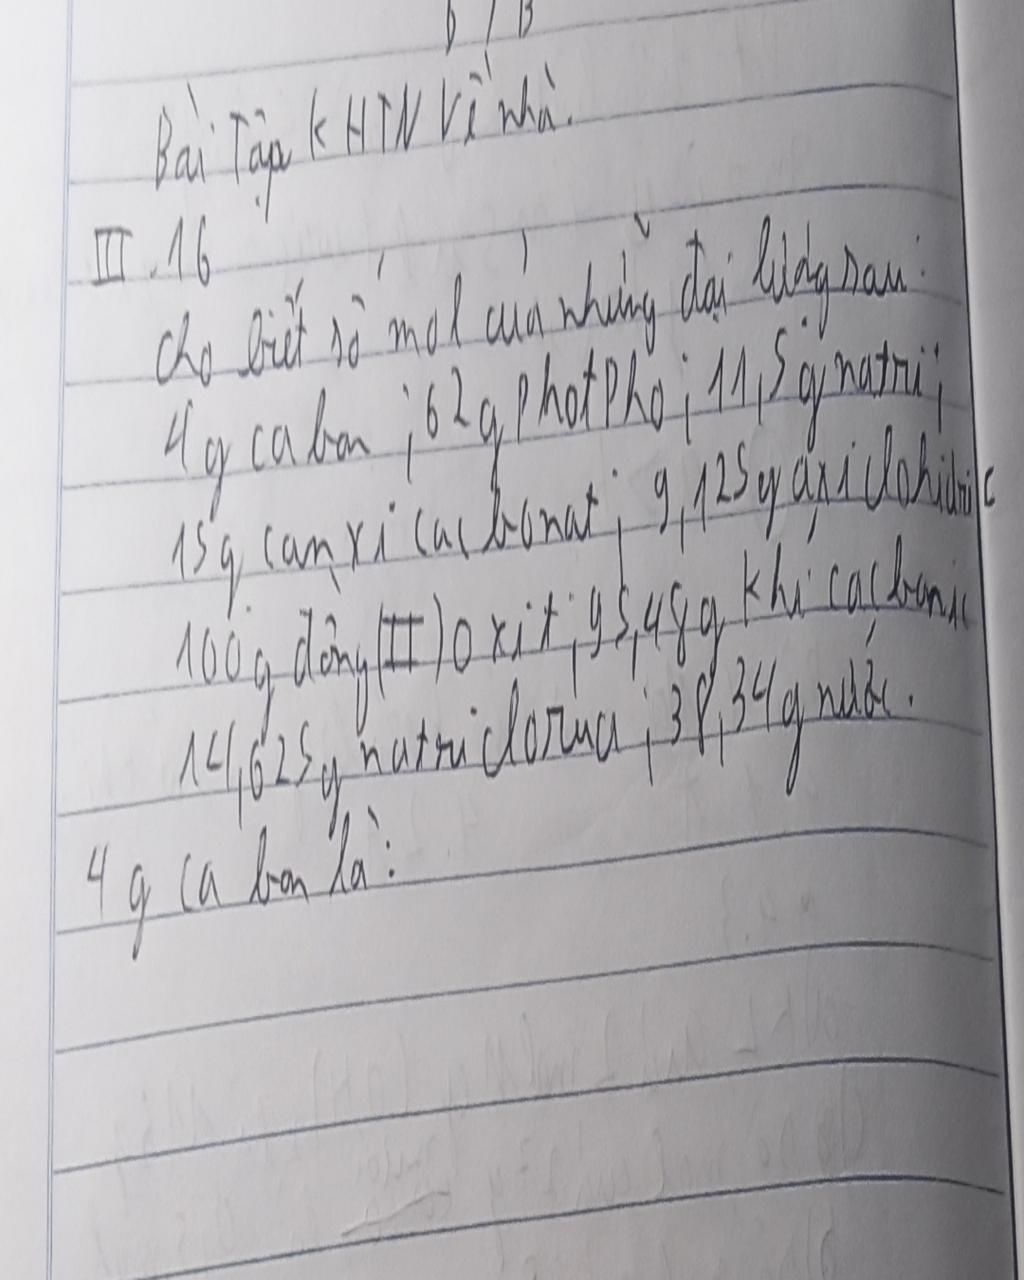 Bài Tập KHTN Về nhà.
III.16
cho biết số mol của những đại lượng sau:
4g ca bon ; 62g photpho ; 11,5g natri ;
15g canxi cacbonat ; 9,125g axi clohidric
100g đồng (II) oxit ; 95,48g khí cacbonic
14,625g natri clorua ; 38,34g nước.
4g ca bon là: